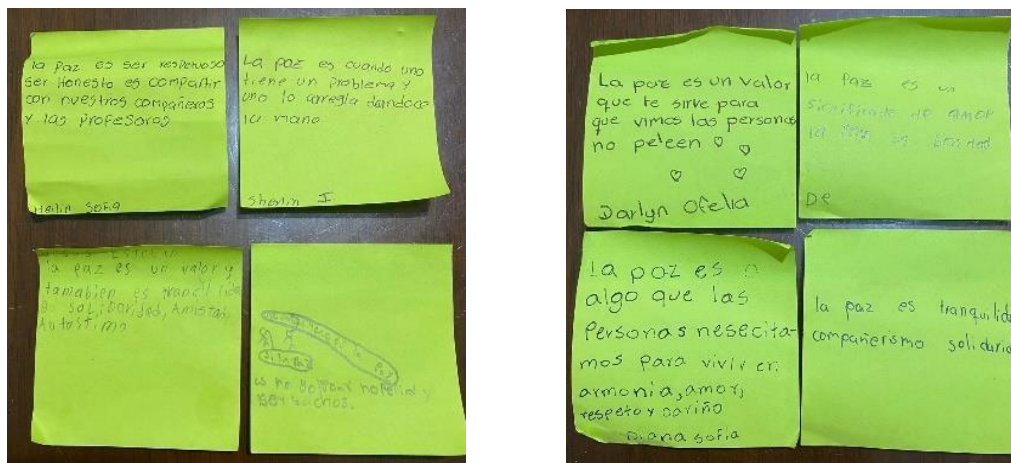 la Paz es ser respetuoso
ser Honesto es compartir
con nuestros compañeros
y las Profesoras
Heilin Sofia
La paz es cuando uno
tiene un problema y
uno lo arregla dandoce
la mano
Sharlin I
la paz es un valor y
tamabien es
solidaridad, Amistad,
Autostima
es no golpear no pelear y
ser buenos.
La paz es un valor
que te sirve para
que vimos las personas
no peleen
Darlyn Ofelia
la Paz es un
significado de amor
la es
De
la paz es
algo que las
Personas nesecita-
mos para vivir en
armonia, amor,
respeto y cariño
Diana sofia
la paz es tranquilida
compañerismo solidario